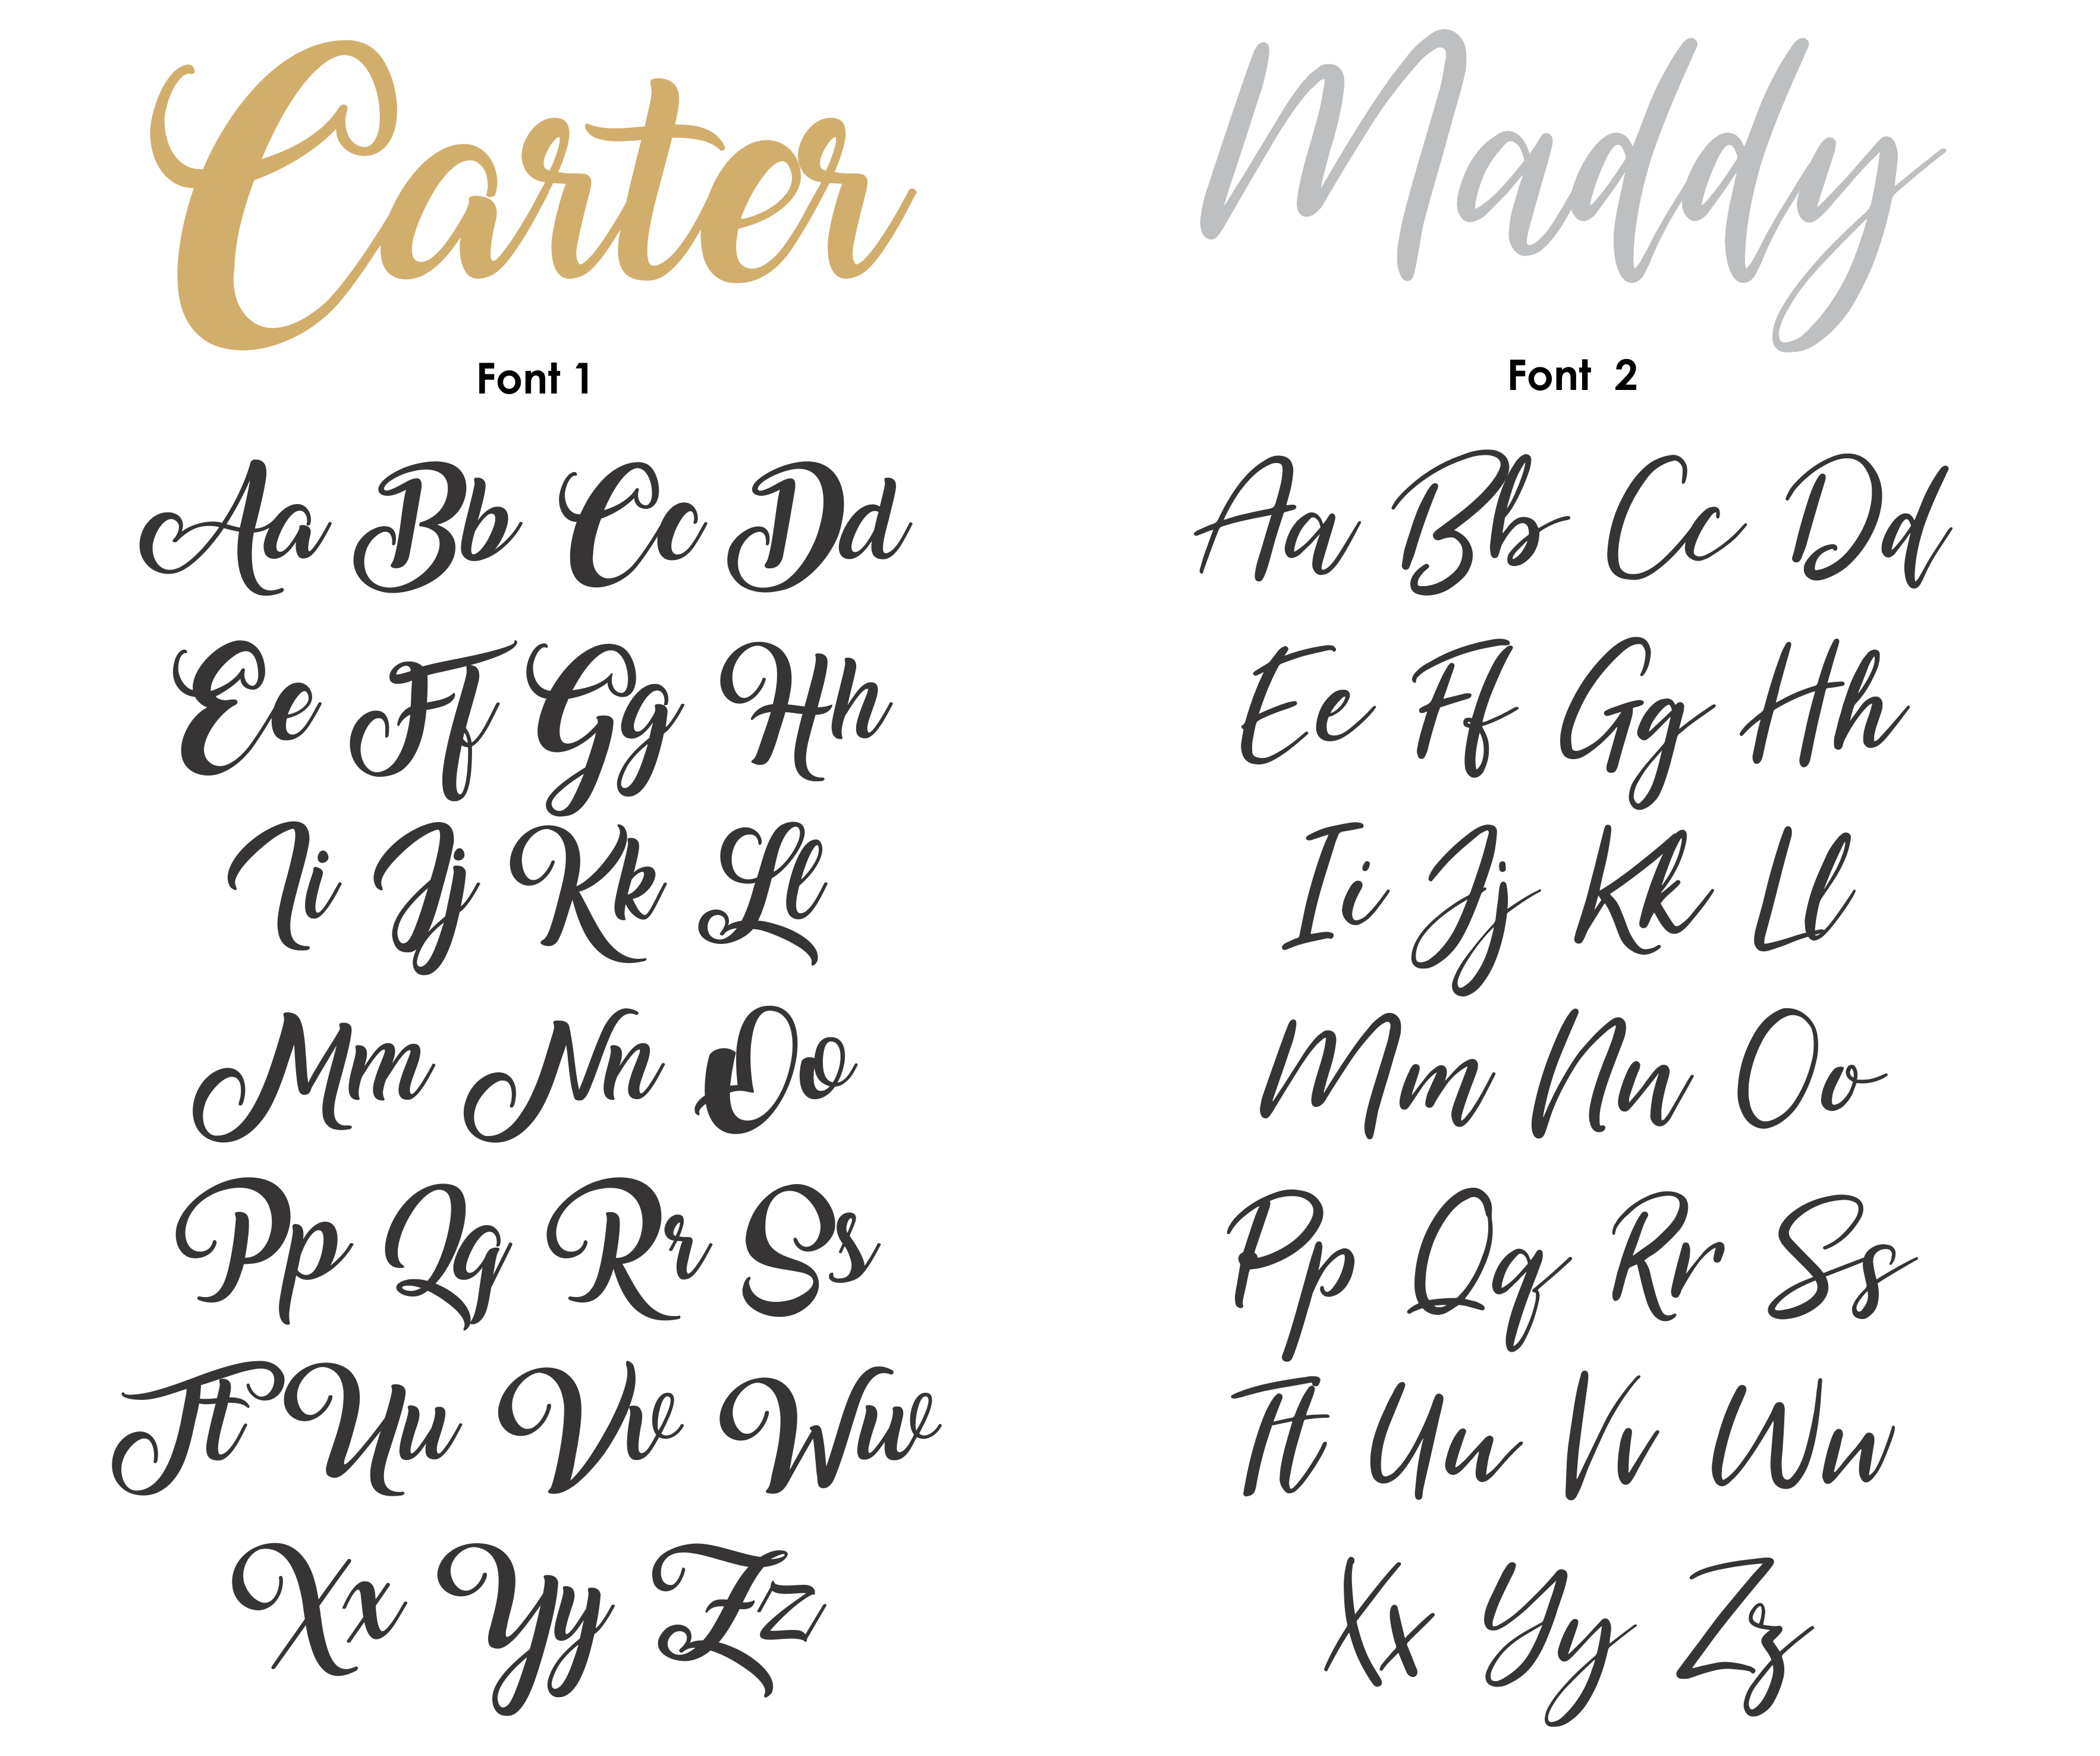 Carter
Font 1
Aa Bb Cc Dd
Ee Ff Gg Hh
Ii Jj Kk Ll
Mm Nn Oo
Pp Qq Rr Ss
Tt Uu Vv Ww
Xx Yy Zz
Maddy
Font 2
Aa Bb Cc Dd
Ee Ff Gg Hh
Ii Jj Kk Ll
Mm Nn Oo
Pp Qq Rr Ss
Tt Uu Vv Ww
Xx Yy Zz